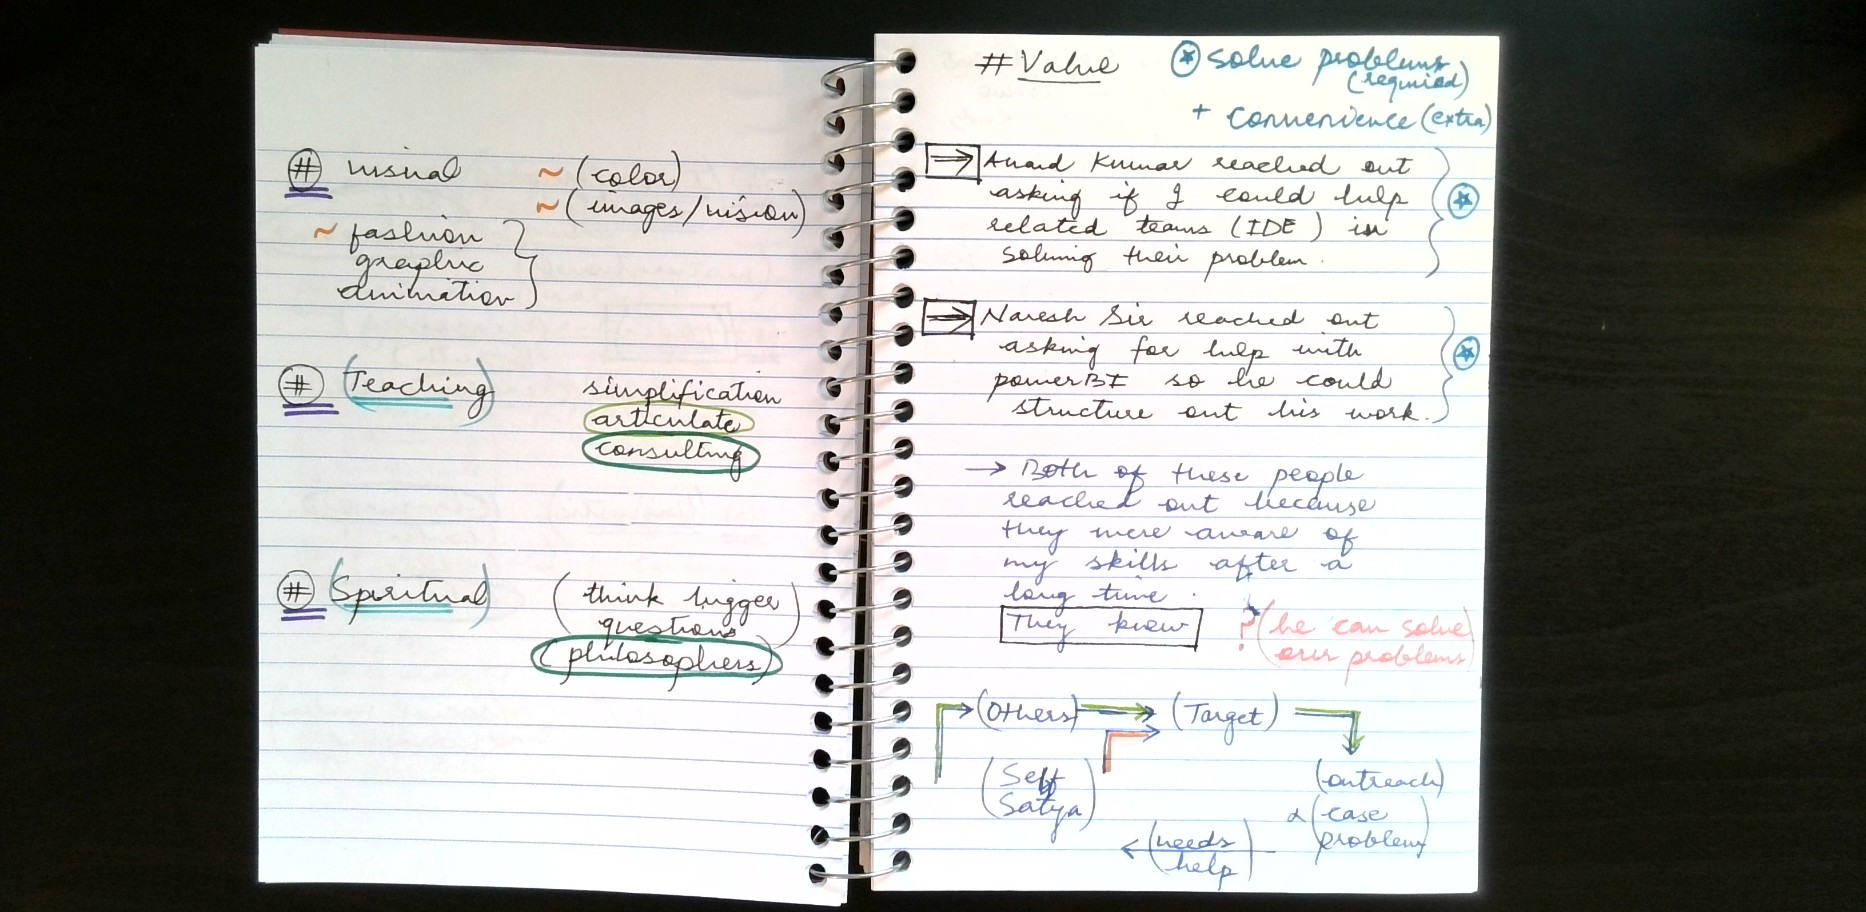 # visual ~ (color)
~ (images/vision)
~ fashion
graphic
animation
# (Teaching) simplification
articulate
consulting
# (Spiritual) (think bigger
questions)
(philosophers)
# Value ⍟ solve problems
(required)
+ convenience (extra)
⇒ Anand Kumar reached out
asking if I could help
related teams (IDE) in
solving their problem.
⇒ Naresh Sir reached out
asking for help with
powerBI so he could
structure out his work.
→ Both of these people
reached out because
they were aware of
my skills after a
long time.
They know ? (he can solve
our problems)
→ (Others) → (Target)
(Self
Satya)
(outreach)
α (case
problem)
← (needs
help)